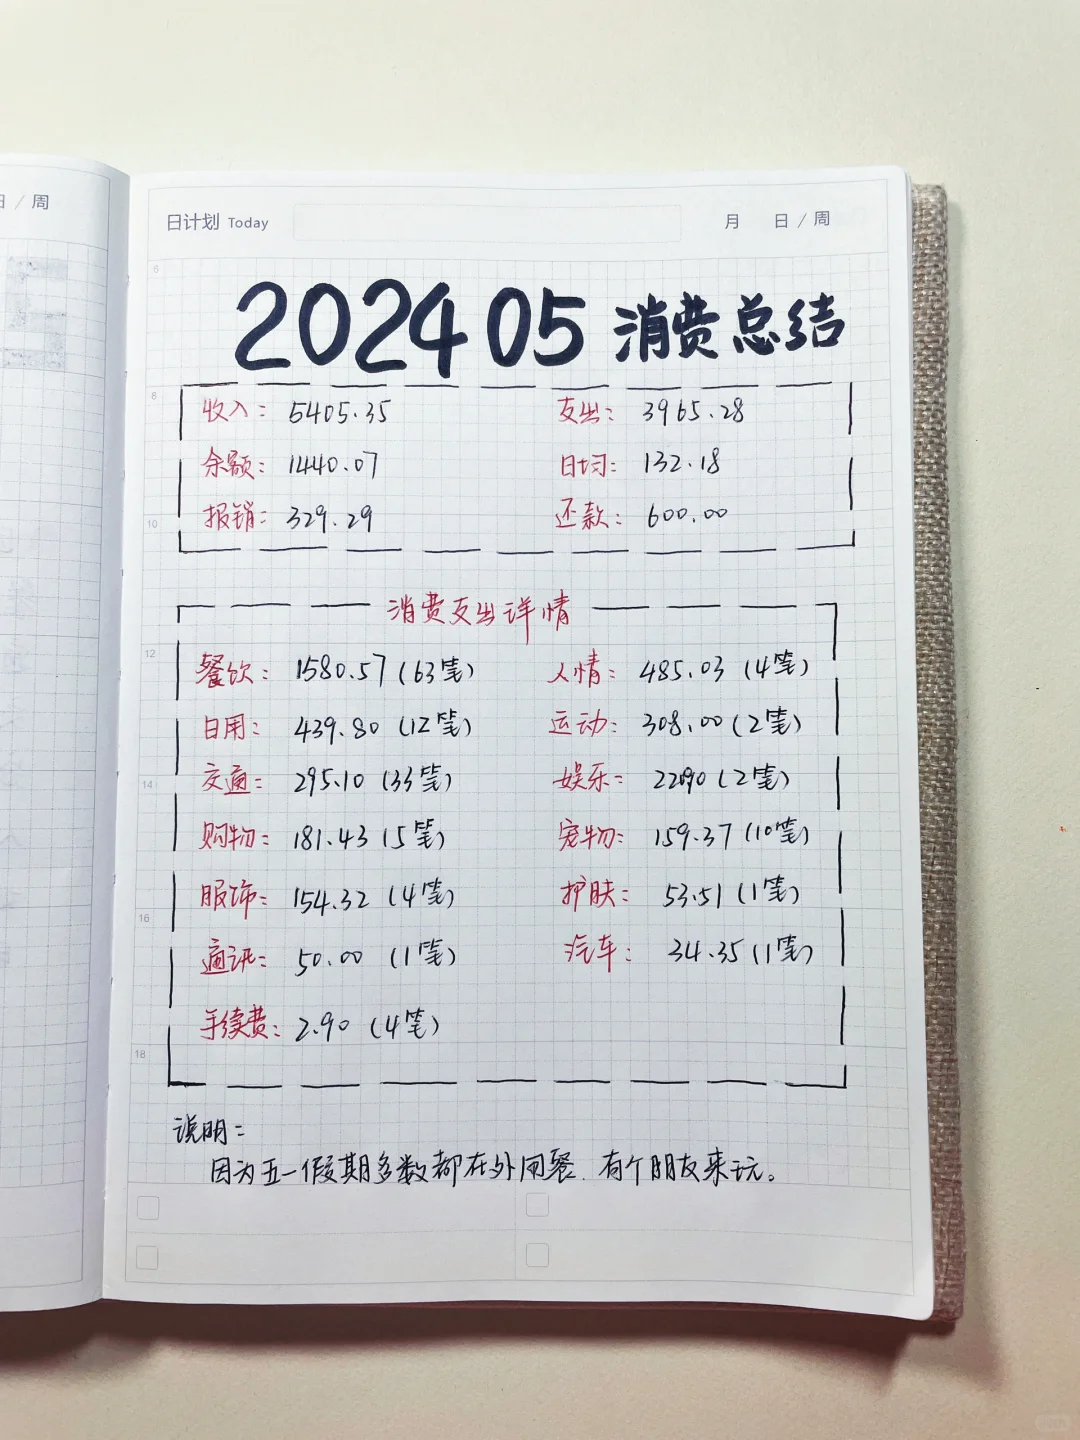 日 / 周
日计划 Today 月 日 / 周
6
2024 05 消费总结
8
收入: 5405.35 支出: 3965.28
余额: 1440.07 日均: 132.18
10
报销: 329.29 还款: 600.00
消费支出详情
12
餐饮: 1580.57 (63笔) 人情: 485.03 (4笔)
日用: 439.80 (12笔) 运动: 308.00 (2笔)
14
交通: 295.10 (33笔) 娱乐: 220.90 (2笔)
购物: 181.43 (5笔) 宠物: 159.37 (10笔)
服饰: 154.32 (4笔) 护肤: 53.51 (1笔)
16
通讯: 50.00 (1笔) 汽车: 34.35 (1笔)
手续费: 2.90 (4笔)
18
说明:
因为五一假期多数都在外用餐. 有个朋友来玩。